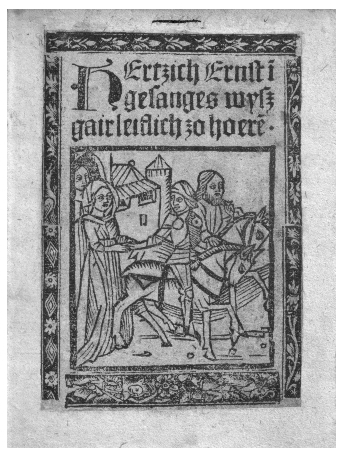 HErtzich Ernst ī
gesanges wysz
gair leiflich zo hoerē.